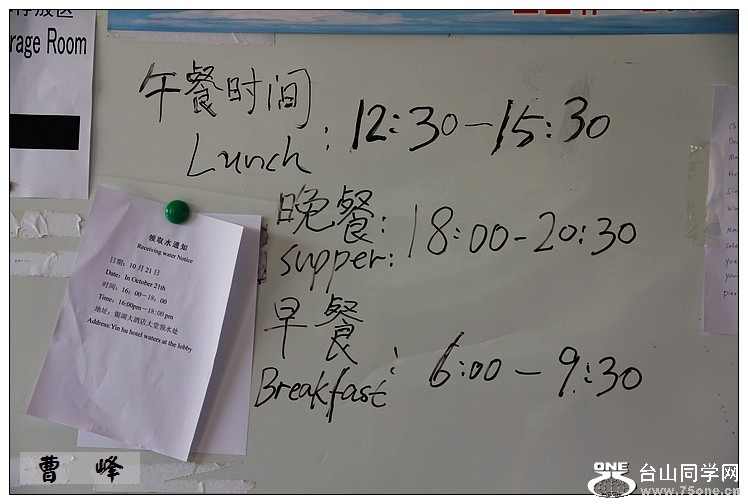 rage Room
午餐时间
Lunch : 12:30—15:30
晚餐: 18:00-20:30
supper:
早餐
Breakfast : 6:00-9:30
领取水通知
Receiving water Notice
日期: 10月21日
Date: In October 21th
时间: 16: 00—18: 00
Time: 16:00pm—18:00 pm
地址: 银湖大酒店大堂领水处
Address: Yin hu hotel waters at the lobby
曹 峰
ONE 台山同学网
www.75one.cn